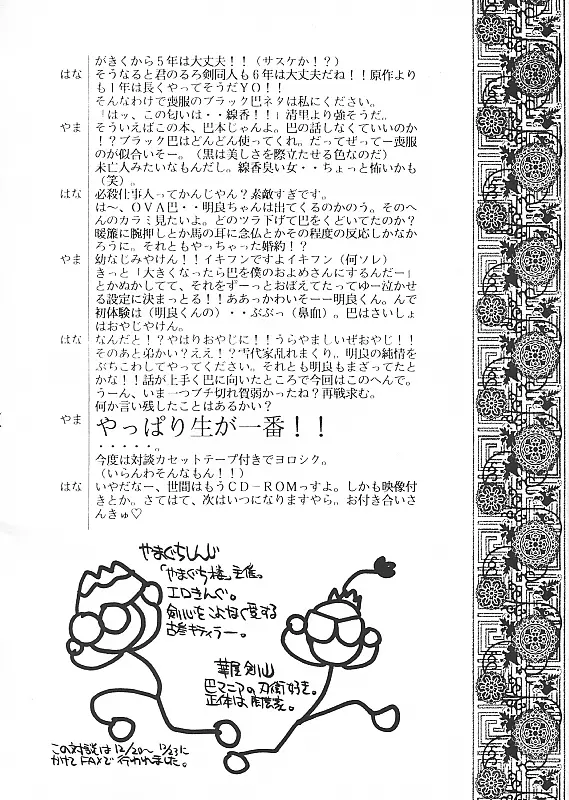 がきくから５年は大丈夫！！（サスケか！？）
はな そうなると君のるろ剣同人も６年は大丈夫だね！！原作より
も１年は長くやってそうだＹＯ！！
そんなわけで喪服のブラック巴ネタは私にください。
「はッ、この匂いは・・線香！！」清里より強そうだ。
やま そういえばこの本、巴本じゃんよ。巴の話しなくていいのか
！？ブラック巴はどんどん使ってくれ。だってぜってー喪服
のが似合いそー。（黒は美しさを際立たせる色なのだ）
未亡人みたいなもんだし。線香臭い女・・ちょっと怖いかも
（笑）。
はな 必殺仕事人ってかんじゃん？素敵すぎです。
は〜、ＯＶＡ巴・・明良ちゃんは出てくるのかのう。そのへ
んのカラミ見たいよ。どのツラ下げて巴をくどいてたのか？
暖簾に腕押しとか馬の耳に念仏とかその程度の反応しかなか
ろうに。それともやっちゃった婚約！？
やま 幼なじみやけん！！イキフンですよイキフン（何ソレ）
きっと「大きくなったら巴を僕のおよめさんにするんだー」
とかぬかしてて、それをずーっとおぼえてたってゆー泣かせ
る設定に決まっとる！！ああっかわいそーー明良くん。んで
初体験は（明良くんの）・・ぶぶっ（鼻血）。巴はさいしょ
はおやじやけん。
はな なんだと！？やはりおやじに！！うらやましいぜおやじ！！
そのあと弟かい？ええ！？雪代家乱れまくり。明良の純情を
ぶちこわしてやってください。それとも明良もまざってたと
かな！！話が上手く巴に向いたところで今回はこのへんで。
うーん、いま一つブチ切れ賀弱かったね？再戦求む。
何か言い残したことはあるかい？
やま やっぱり生が一番！！
・・・・・。
今度は対談カセットテープ付きでヨロシク。
（いらんわそんなもん！！）
はな いやだなー、世間はもうＣＤ−ＲＯＭっすよ。しかも映像付
きとか。さてはて、次はいつになりますやら。お付き合いさ
んきゅ♡
やまぐちしんじ
「やまぐち楼」主催。
エロきんぐ。
剣心をこよなく愛する
古参キティラー。
華屋剣山
巴マニアの刃衛好き。
正体は
この対談は12/20〜12/23に
かけてFAXで行われました。